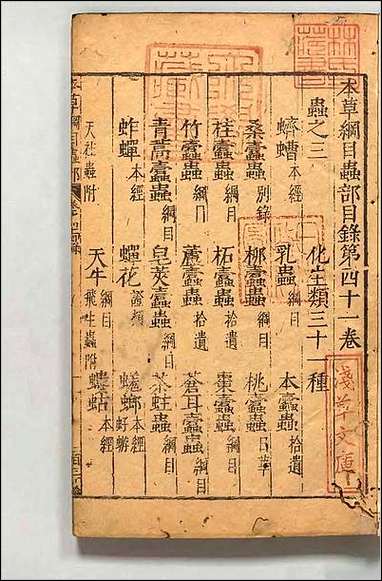 本草綱目蟲部目錄第四十一卷
蟲之三　化生類三十一種
蠐螬本經　乳蟲綱目　木蠹蟲拾遺
桑蠹蟲別錄　柳蠹蟲綱目　桃蠹蟲日華
桂蠹蟲綱目　柘蠹蟲拾遺　棗蠹蟲綱目
竹蠹蟲綱目　蘆蠹蟲拾遺　蒼耳蠹蟲綱目
青蒿蠹蟲綱目　皂莢蠹蟲綱目　茶蛀蟲綱目
蚱蟬本經　蟬花證類　蜣蜋本經　蜉蝣附
天社蟲附　天牛綱目　飛生蟲附　螻蛄本經
本草綱目蟲部
淺草文庫